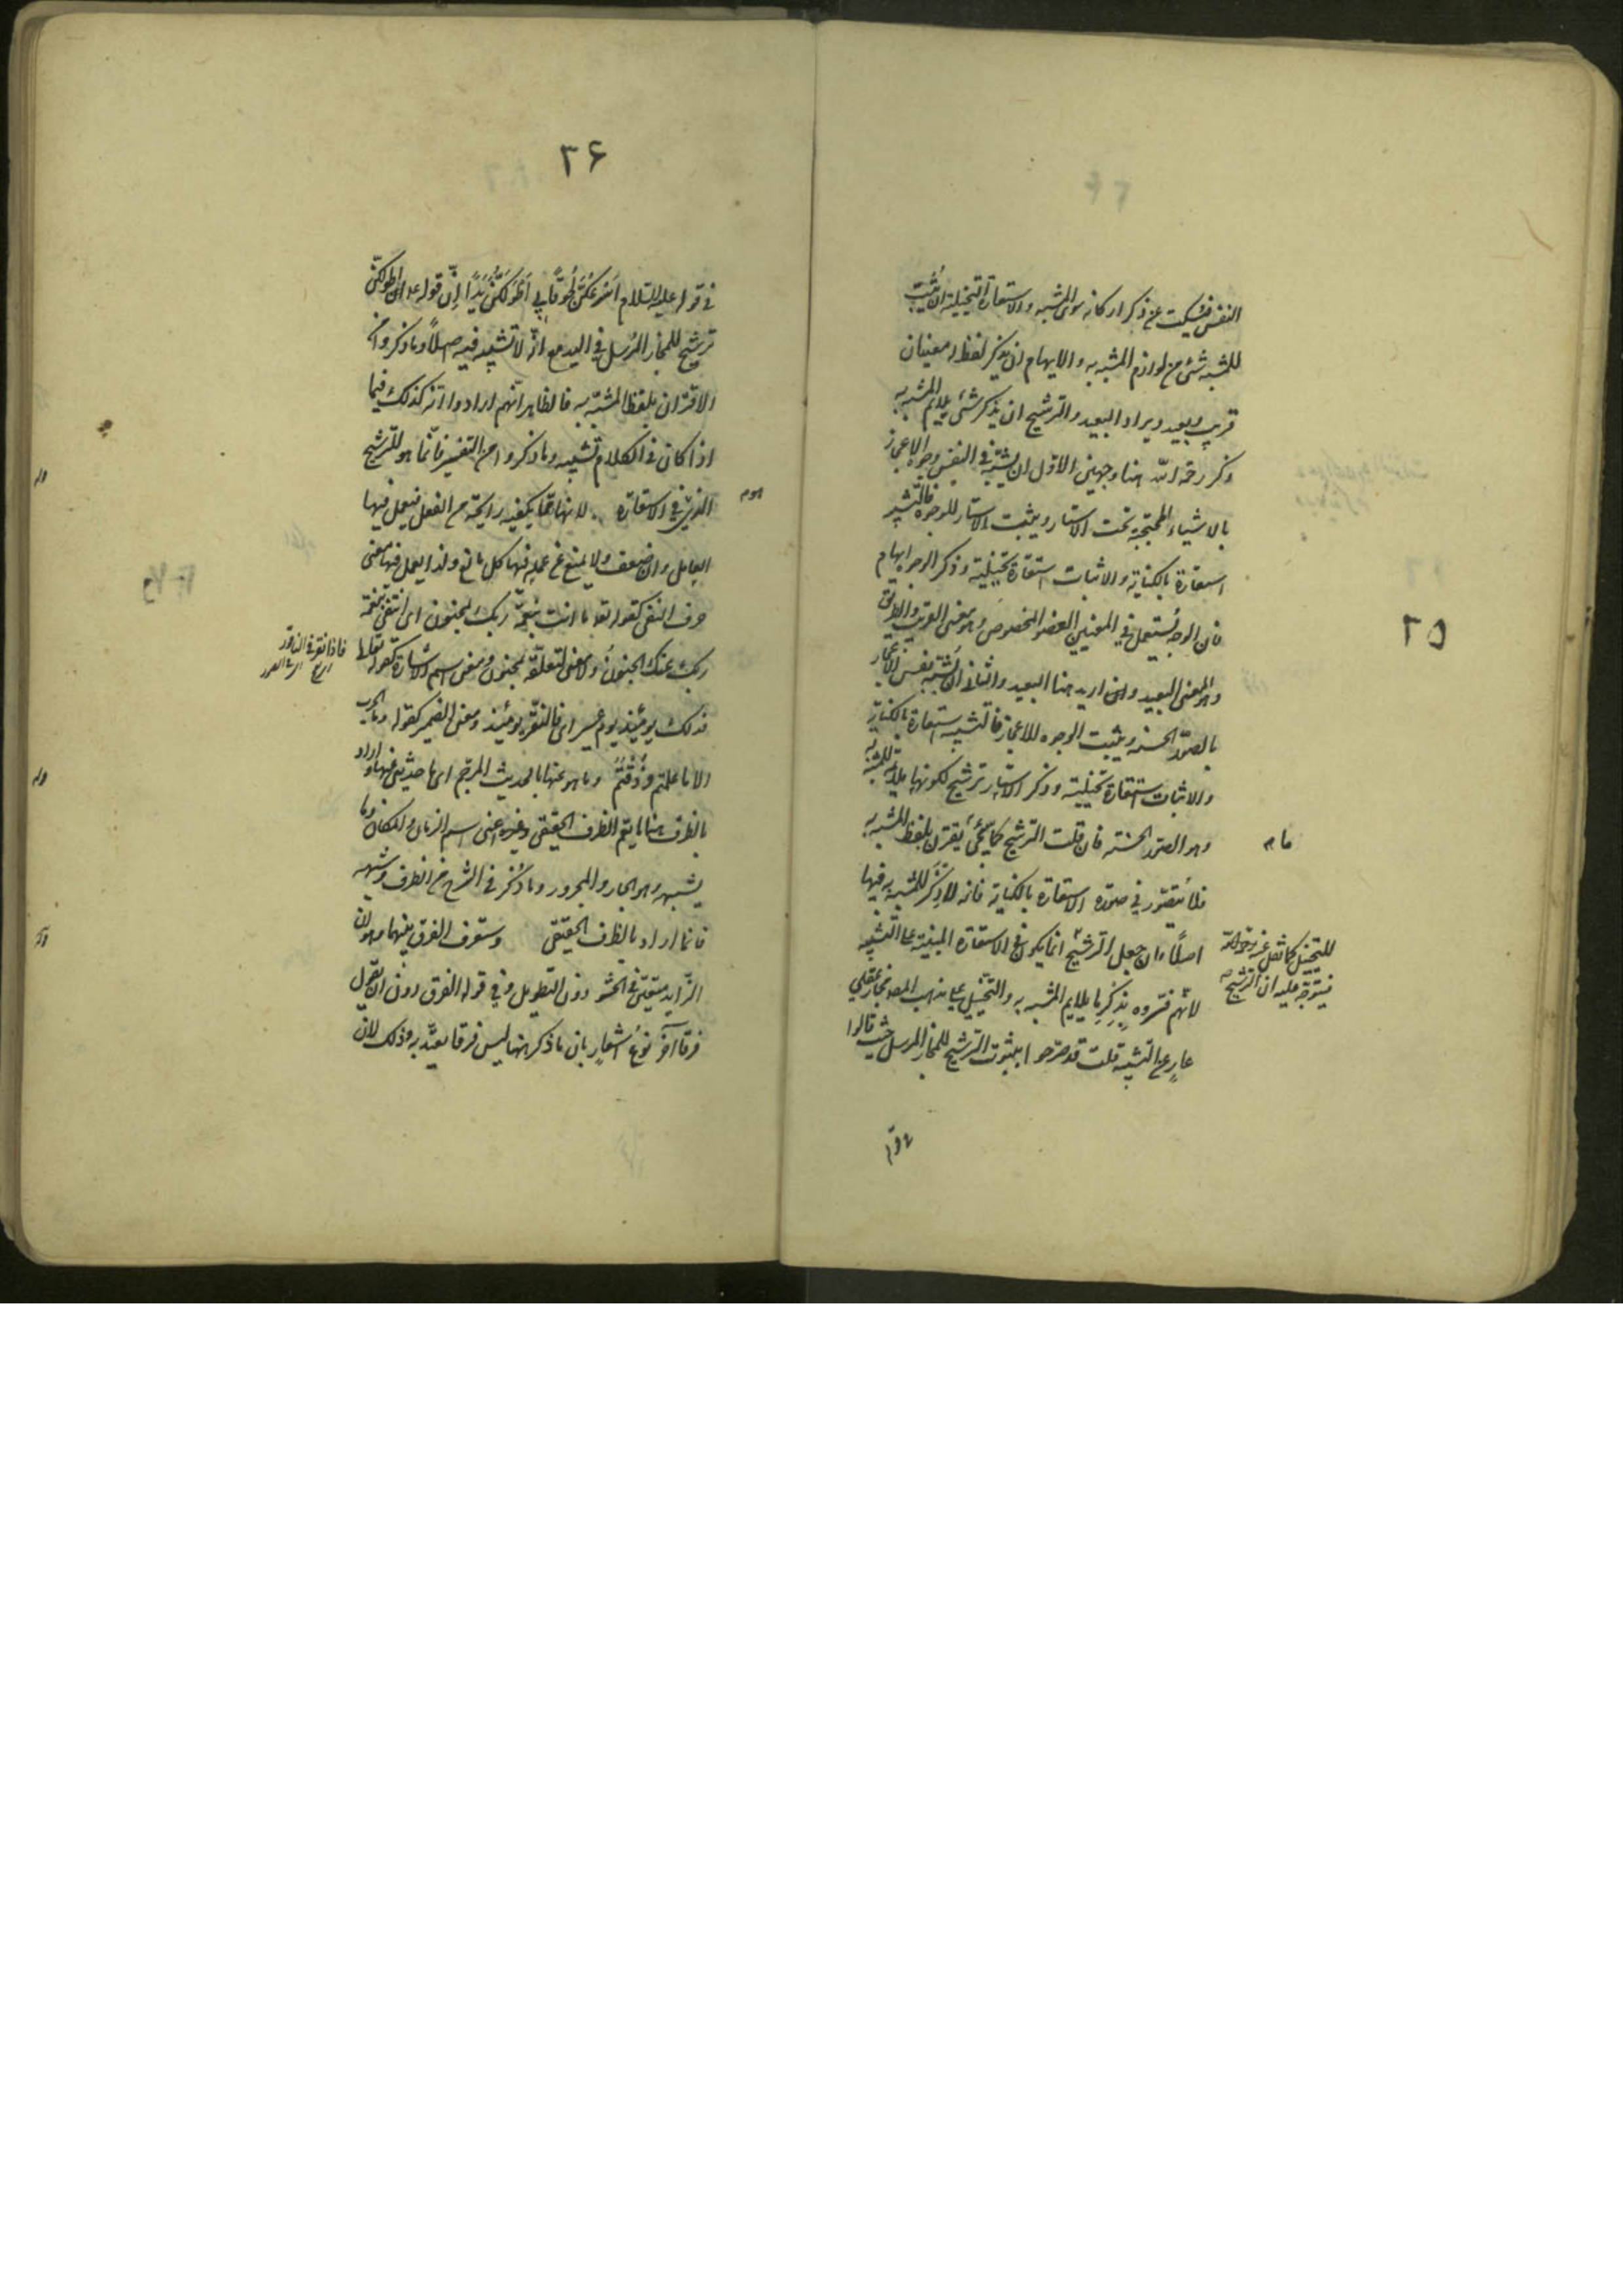 ٢٥
النفس فيسكت عن ذكر اركانه سوى المشبه والاستعارة التخييلية ان يثبت
للمشبه شئ من لوازم المشبه به والايهام ان يذكر لفظ له معنيان
قريب وبعيد ويراد البعيد والترشيح ان يذكر شئ يلايم المشبه به
وذكر رحمه الله هنا وجهين الاول ان يشبه في النفس وجوه الاعجاز
بالاشياء المحتجبة تحت الاستار ويثبت الاستار للوجوه فالتشبيه
استعارة بالكناية والاثبات استعارة تخييلية وذكر الوجوه ايهام
فان الوجه يستعمل في المعنيين العضو المخصوص وهو معنى القريب والطريق
وهو المعنى البعيد وان اريد هنا البعيد والثاني ان يشبه نفس الاعجاز
بالصور الحسنة ويثبت الوجوه للاعجاز فالتشبيه استعارة بالكناية
والاثبات استعارة تخييلية وذكر الاستار ترشيح لكونها يلايم للمشبه به
وهو الصور الحسنة فان قلت الترشيح كما يجئ يقترن بلفظ المشبه به
فلا يتصور في صورة الاستعارة بالكناية فانه لا ذكر للمشبه به فيها
اصلا وان جعل الترشيح انما يكون في الاستعارة المبنية على التشبيه
للتخييل كما نقل عنه رحمه الله
فيتوجه عليه ان الترشيح
لانهم فسروه بذكر ما يلايم المشبه به والتخييل على مذهب المص مجاز عقلي
عار عن التشبيه قلت قد صرحوا بثبوت الترشيح للمجاز المرسل حيث قالوا
٣۶
في قوله عليه السلام اسرعكن لحوقا بي اطولكن يدا ان قوله عم اطولكن
ترشيح للمجاز المرسل في اليد مع انه لا تشبيه فيه اصلا وما ذكروا من
الاقتران بلفظ المشبه به فالظاهر انهم ارادوا انه كذلك فيما
اذا كان في الكلام تشبيه وما ذكروا من التفسير فانما هو للترشيح
الذي في الاستعارة لانها مما يكفيه رايحة من الفعل فيعمل فيها
العامل وان ضعف ولا يمنع عن عمله فيها كل مانع ولذا يعمل فيها معنى
حرف النفى كقوله تعه ما انت بنعمة ربك بمجنون اى انتفى بنعمة
ربك عنك الجنون ولا معنى لتعلقه بمجنون ومعنى اسم الاشارة كقوله تعالى
فاذا نقر في الناقور
فذلك يومئذ يوم عسير اى فالنقر يومئذ ومعنى الضمير كقوله وما الحرب
الا ما علمتم وذقتم وما هو عنها بالحديث المرجم اى ما حديثى عنها واراد
بالظرف هنا ما يتم الظرف الحقيقى وغيره اعنى اسم الزمان والمكان وما
يشبهه وهو الجار والمجرور وما ذكر في الشرح من الظرف وشبهه
فانما اراد بالظرف الحقيقى وستعرف الفرق بينهما وهو ان
الزايد متعين في الحشو دون التطويل وفي قوله الفرق دون ان يقول
فرقا آخر نوع اشعار بان ما ذكر هنا ليس فرقا يعتد به وذلك لان